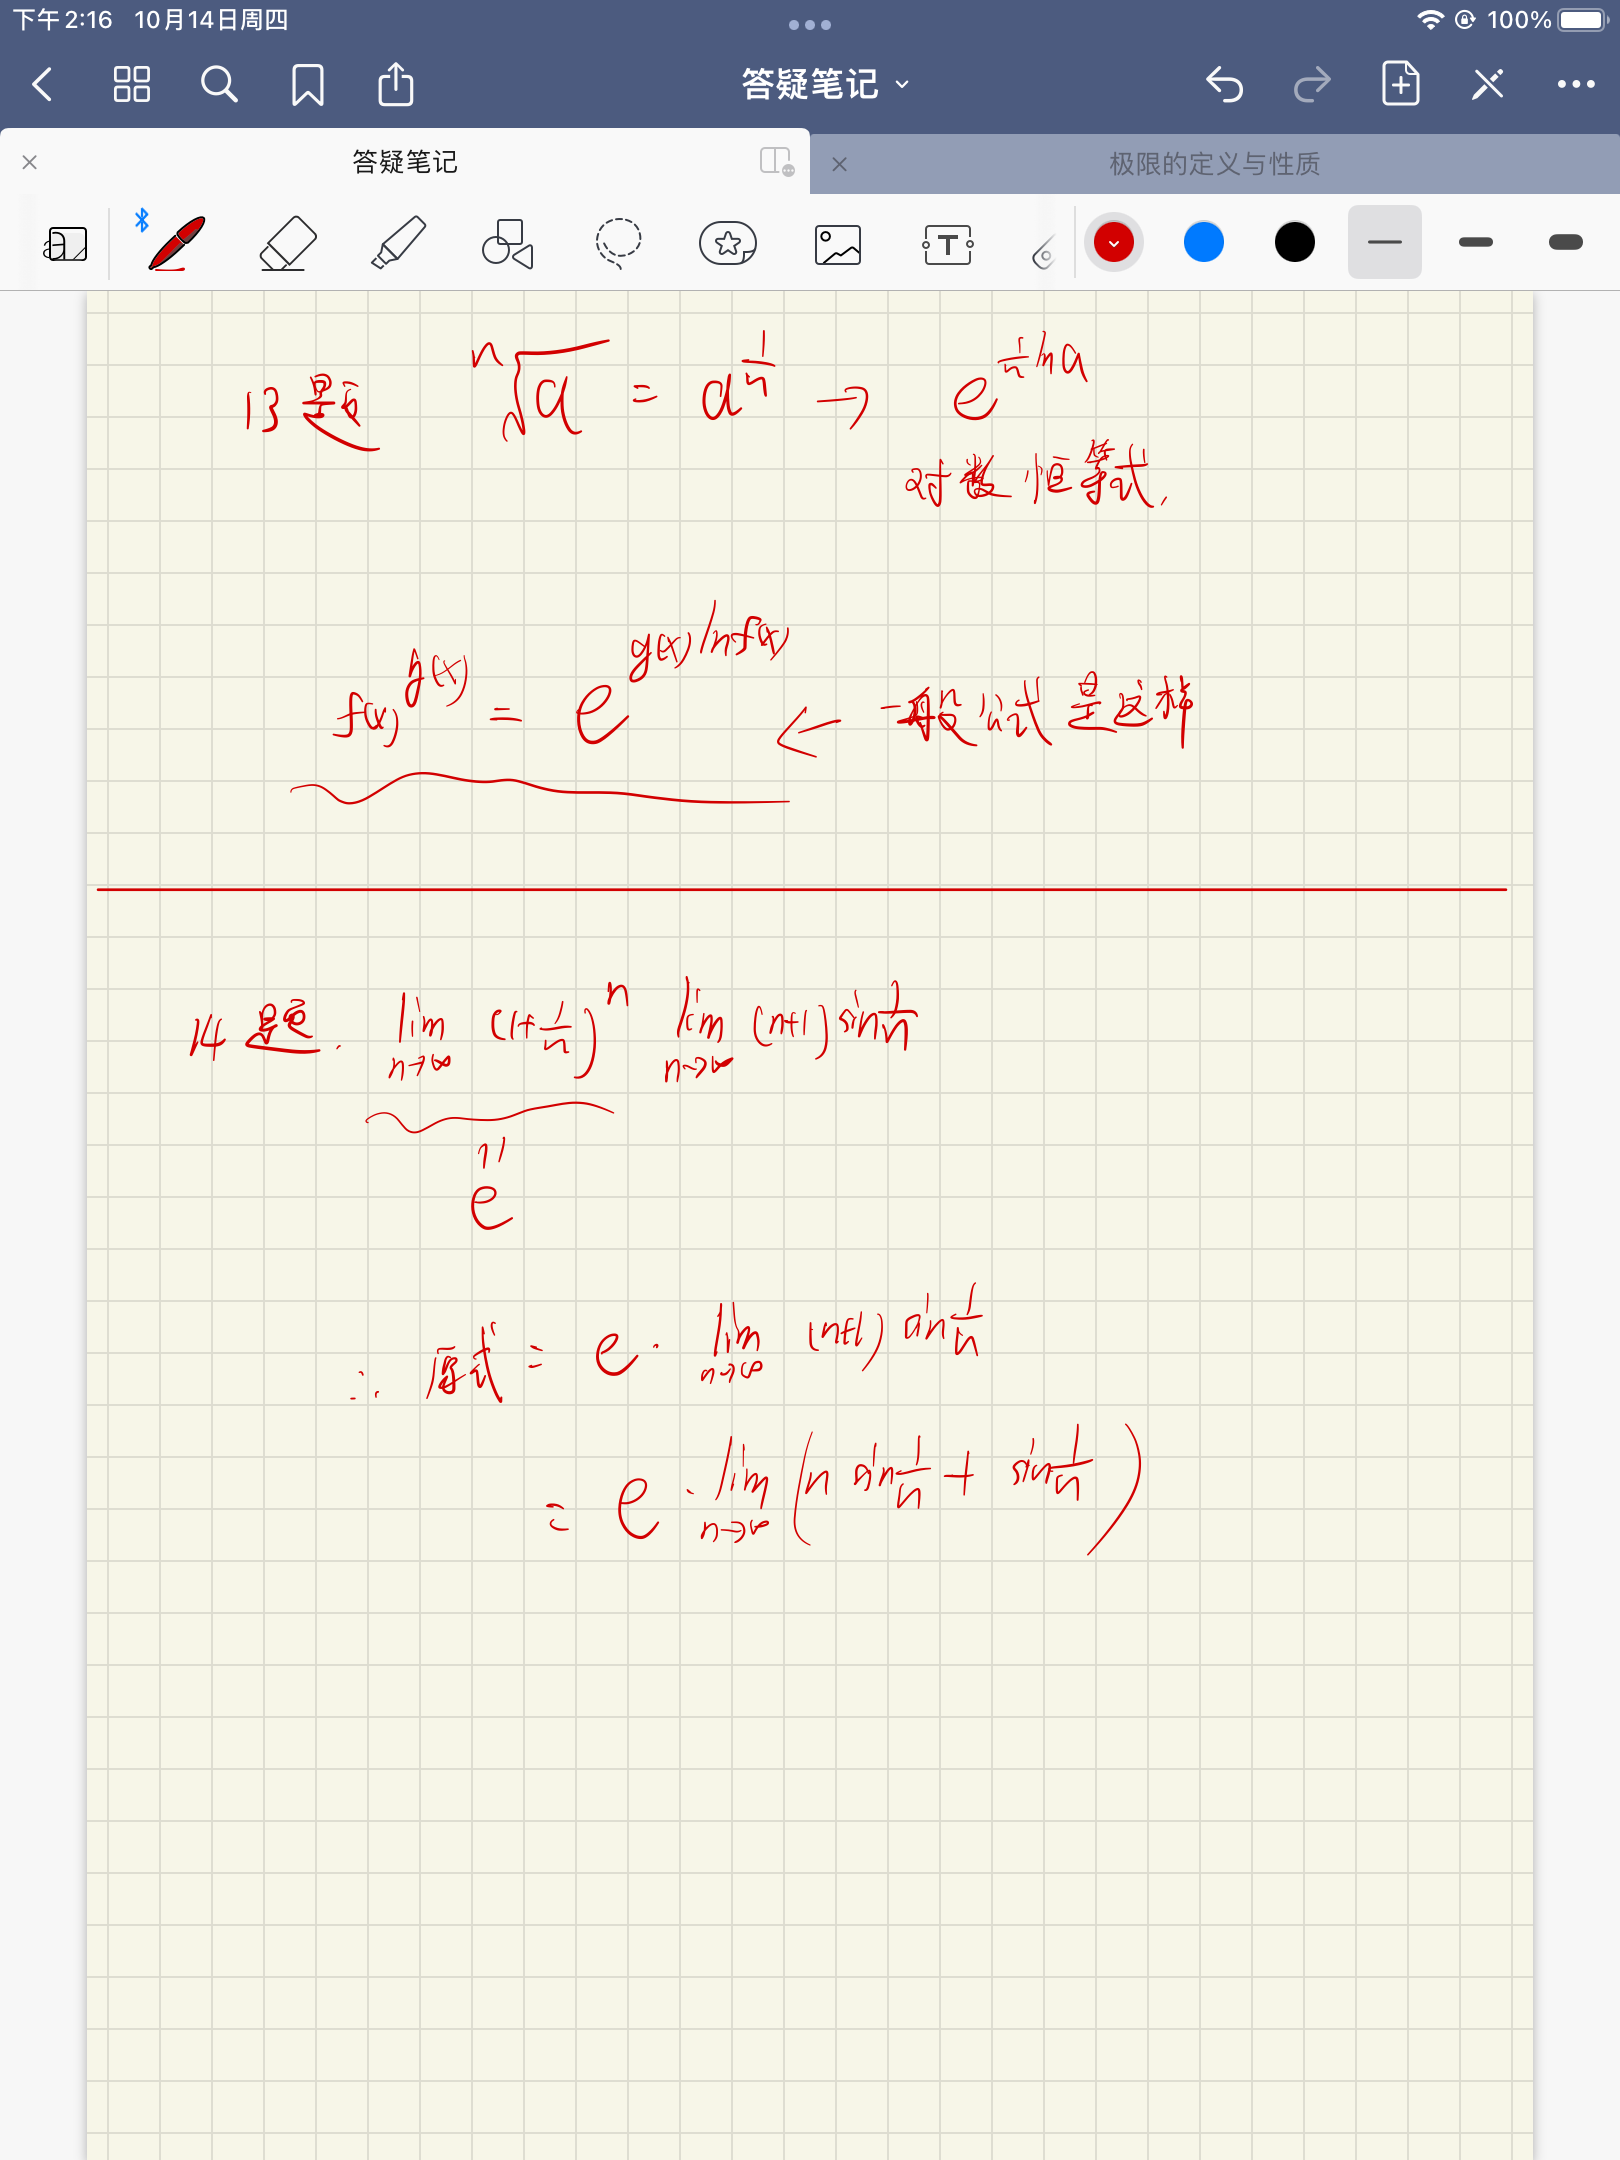 下午2:16 10月14日周四 100%
答疑笔记
答疑笔记 极限的定义与性质
13题 ⁿ√a = a^(1/n) → e^((1/n) ln a)
对数恒等式,
f(x)^(g(x)) = e^(g(x) ln f(x)) ← 一般公式是这样
14题. lim n→∞ (1+1/n)^n lim n→∞ (n+1) sin 1/n
"
e
∴ 原式 = e · lim n→∞ (n+1) sin 1/n
= e · lim n→∞ (n sin 1/n + sin 1/n)